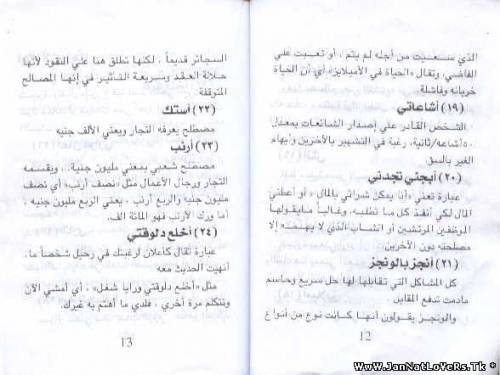 الذي سعيت من أجله لم يتم ، أو تعبت علي
الفاضي، وتقال «الحياة في الأمبلايز» أي أن الحياة
خربانه وفاشلة.
(١٩) أشاعاتي
الشخص القادر علي إصدار الشائعات بمعدل
٥ أشاعه/ثانية، رغبة في التشهير بالآخرين وإيهام
الغير بالسبق.
(٢٠) أبجني تجدني
عبارة تعني «إنا يمكن شرائي بالمال ، أو أعطني
المال لكي أنفذ كل ما تطلبه، وغالباً مايقولها
الموظفين المرتشين أو الشباب الذي لا يهمه إلا
مصلحته دون الآخرين.
(٢١) أنجز بالونجز
كل المشاكل التي تقابلها لها حل سريع وحاسم
مادمت تدفع المقابل.
والونجز يقولون أنها كانت نوع من أنواع
12
السجائر قديماً ، لكنها تطلق هنا علي النقود لأنها
حلالة العقد وسريعة التأثير في إنهاء المصالح
المتوقفة.
(٢٢) أستك
مصطلح يعرفه التجار ويعني الألف جنيه
(٢٣) أرنب
مصطلح شعبي بمعني مليون جنية.. ويقسمه
التجار ورجال الأعمال مثل «نصف أرنب» أي نصف
مليون جنيه والربع أرنب ، يعني الربع مليون جنيه،
أما ورك الأرنب فهو المائة الف.
(٢٤) أخلع دلوقتي
عبارة تقال كأعلان لرغبتك في رحيل شخصاً ما،
أنهيت الحديث معه
مثل «أخلع دلوقتي ورايا شغل» ، أي أمشي الآن
ونتكلم مرة أخري ، فلدي ما أهتم به غيرك.
13
Www.JanNatLoVeRs.Tk *